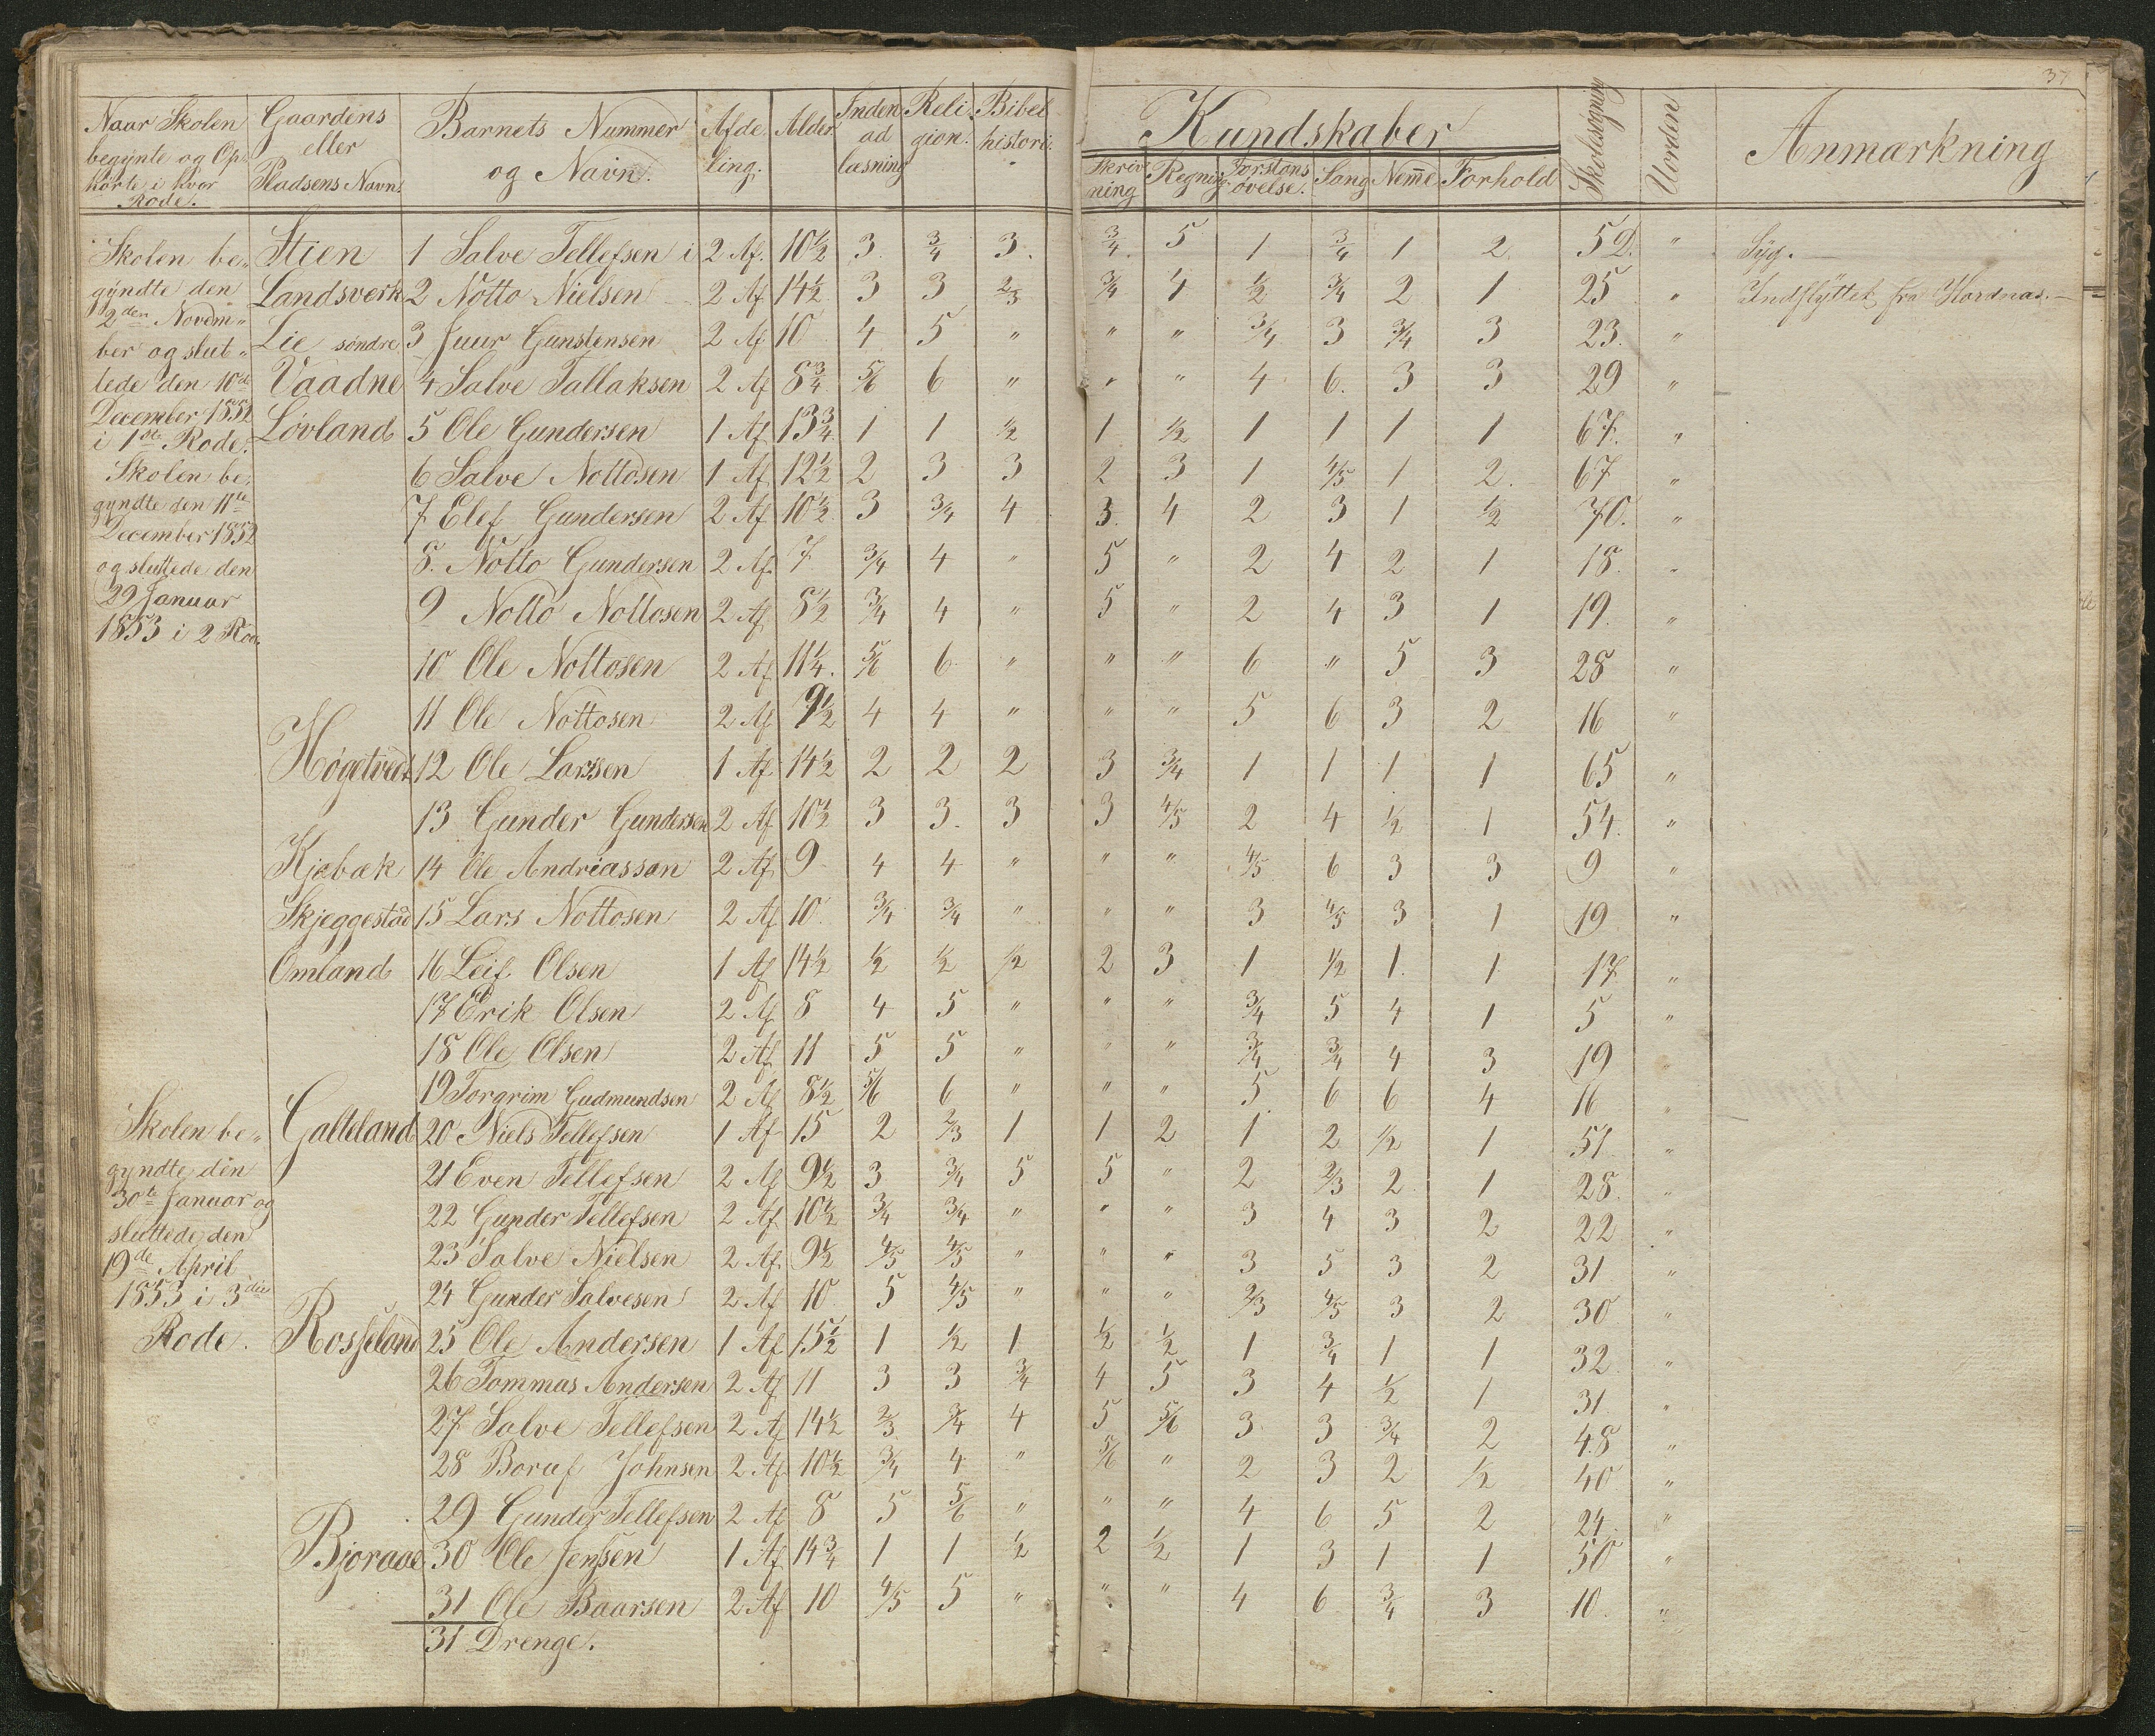 37
Naar Skolen begynte og Op- hörte i hver Rode. | Gaardens eller Pladsens Navn. | Barnets Nummer og Navn. | Afde ling. | Alder. | Inden ad læsning | Reli gion. | Bibel histori. | Kundskaber | Skriv ning | Regning. | Forstans övelse. | Sang | Nem̄e | Forhold | Skolesögning | Uorden | Anmærkning
Skolen be„ Stien 1 Salve Tellefsen i 2 Af. 10½ 3. ¾ 3. ¾. 5 1 ¾ 1 2. 52. " Syg. —
gyndte den Landsverk 2 Notto Nielsen 2 Af 14½ 3 3 ⅔ ¾ 4 ½ ¾ 2 1 25 " Indflyttet fra Hordnæs. —
2den Novem„
ber og slut„ Lie söndre 3 Juur Gunstensen 2 Af 10 4 5 " " " ¾ 3 ¾ 3 23. "
tede den 10de Vaadne 4 Salve Tallaksen 2 Af 8¾ 5/6 6 " " " 4 6. 3 3 29 "
December 1852 Lövland 5 Ole Gundersen 1 Af 13¾ 1 1 ½ 1 ½ 1 1 1 1 67. "
i 1ste Rode.
Skolen be. 6 Salve Nottosen 1 Af 12½ 2 3 3 2 3 1 4/5 1 2. 67 "
gyndte den 11te 7 Elef Gundersen 2 Af 10½ 3 ¾ 4 3. 4 2 3 1 ½ 70. "
December 1852
og sluttede den 8. Notto Gundersen 2 Af. 7 ¾ 4 " 5 " 2 4 2 1 18. "
29 Januar 9 Notto Nottosen 2 Af 8½ ¾ 4 " 5 " 2 4 3 1 19. "
1853 i 2 Rode
10 Ole Nottosen 2 Af 11¼. 5/6 6 " " " 6 " 5 3 28 "
11 Ole Nottosen 2 Af 9½ 4 4 " " " 5 6 3 2 16 "
Högetvedt 12 Ole Larssen 1 Af 14½ 2 2 2 3 ¾ 1 1 1 1 65 "
13 Gunder Gundersen 2 Af 10½ 3 3. 3 3 4/5 2 4 ½ 1 54. "
Kjebæk 14 Ole Andreasson 2 Af 9 4 4 " " " 4/5 6 3 3 9 "
Skjeggestad 15 Lars Nottosen 2 Af 10. ¾ ¾ " " " 3 4/5 3 1 19 "
Omland 16 Leif Olsen 1 Af 14½ ½ ½ ½ 2 3 1 ½ 1. 1 17. "
17 Erik Olsen 2 Af 8 4 5 " " " ¾ 5 4 1 5 "
18 Ole Olsen 2 Af 11 5 5 " " " ¾ ¾ 4 3 19 "
19 Torgrim Gudmundsen 2 Af 8½ 5/6 6 " " " 5 6 6 4 16 "
Skolen be„ Galteland 20 Niels Tellefsen 1 Af 15 2 ⅔ 1 1 2 1 2 ½ 1 51. "
gyndte den 21 Even Tellefsen 2 Af 9½ 3 ¾ 5 5 " 2 ⅔ 2 1 28. "
30te Januar og 22 Gunder Tellefsen 2 Af 10½ ¾ ¾ " " " 3 4 3 2 22 "
sluttede den 23 Salve Nielsen 2 Af. 9½ 4/5 4/5 " " " 3 5 3 2 31 "
19de April
1853 i 3die 24 Gunder Salvesen 2 Af 10 5 4/5 " " " ⅔ 4/5 3 2 30 "
Rode. Rosseland 25 Ole Andersen 1 Af 15½ 1 ½ 1 ½ ½ 1 ¾ 1 1 32. "
26 Tommas Andersen 2 Af 11 3 3 ¾ 4 5 3 4 ½ 1 31. "
27 Salve Tellefsen 2 Af 14½ ⅔ ¾ 4 5 5/6 3 3 ¾ 2 48 "
28 Boruf Johnsen 2 Af. 10½ ¾ 4 " 5/6 " 2 3 2 ½ 40 "
29 Gunder Tellefsen 2 Af 8 5 5/6 " " " 4 6 5 2 24. "
Bjoraae 30 Ole Jenssen 1 Af 14¾ 1 1 ½ 2 ½ 1 3 1 1 50 "
31 Ole Baarsen 2 Af 10 4/5 5 " " " 4 6 ¾ 3 10. "
31 Drenge.